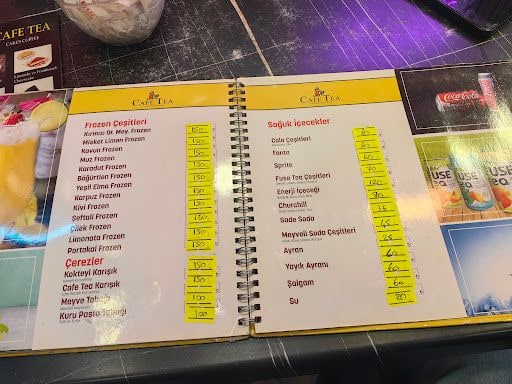 CAFE TEA
CAKES COFFEE
CAFE TEA
Frozen Çeşitleri
Kırmızı Or. Mey. Frozen 150
Misket Limon Frozen 150
Kavun Frozen 150
Muz Frozen 150
Karadut Frozen 150
Böğürtlen Frozen 150
Yeşil Elma Frozen 150
Karpuz Frozen 150
Kivi Frozen 150
Şeftali Frozen 150
Çilek Frozen 150
Limonata Frozen 150
Portakal Frozen
Çerezler
Kokteyl Karışık 150
Cafe Tea Karışık 150
Meyve Tabağı 100
Kuru Pasta Tabağı 100
CAFE TEA
Soğuk İçecekler
Cola Çeşitleri 60
Fanta 60
Sprite 60
Fuse Tea Çeşitleri
Enerji İçeceği
Churchill
Sade Soda 35
Meyveli Soda Çeşitleri 45
Ayran
Yayık Ayranı 60
Şalgam 60
Su 20
Coca-Cola